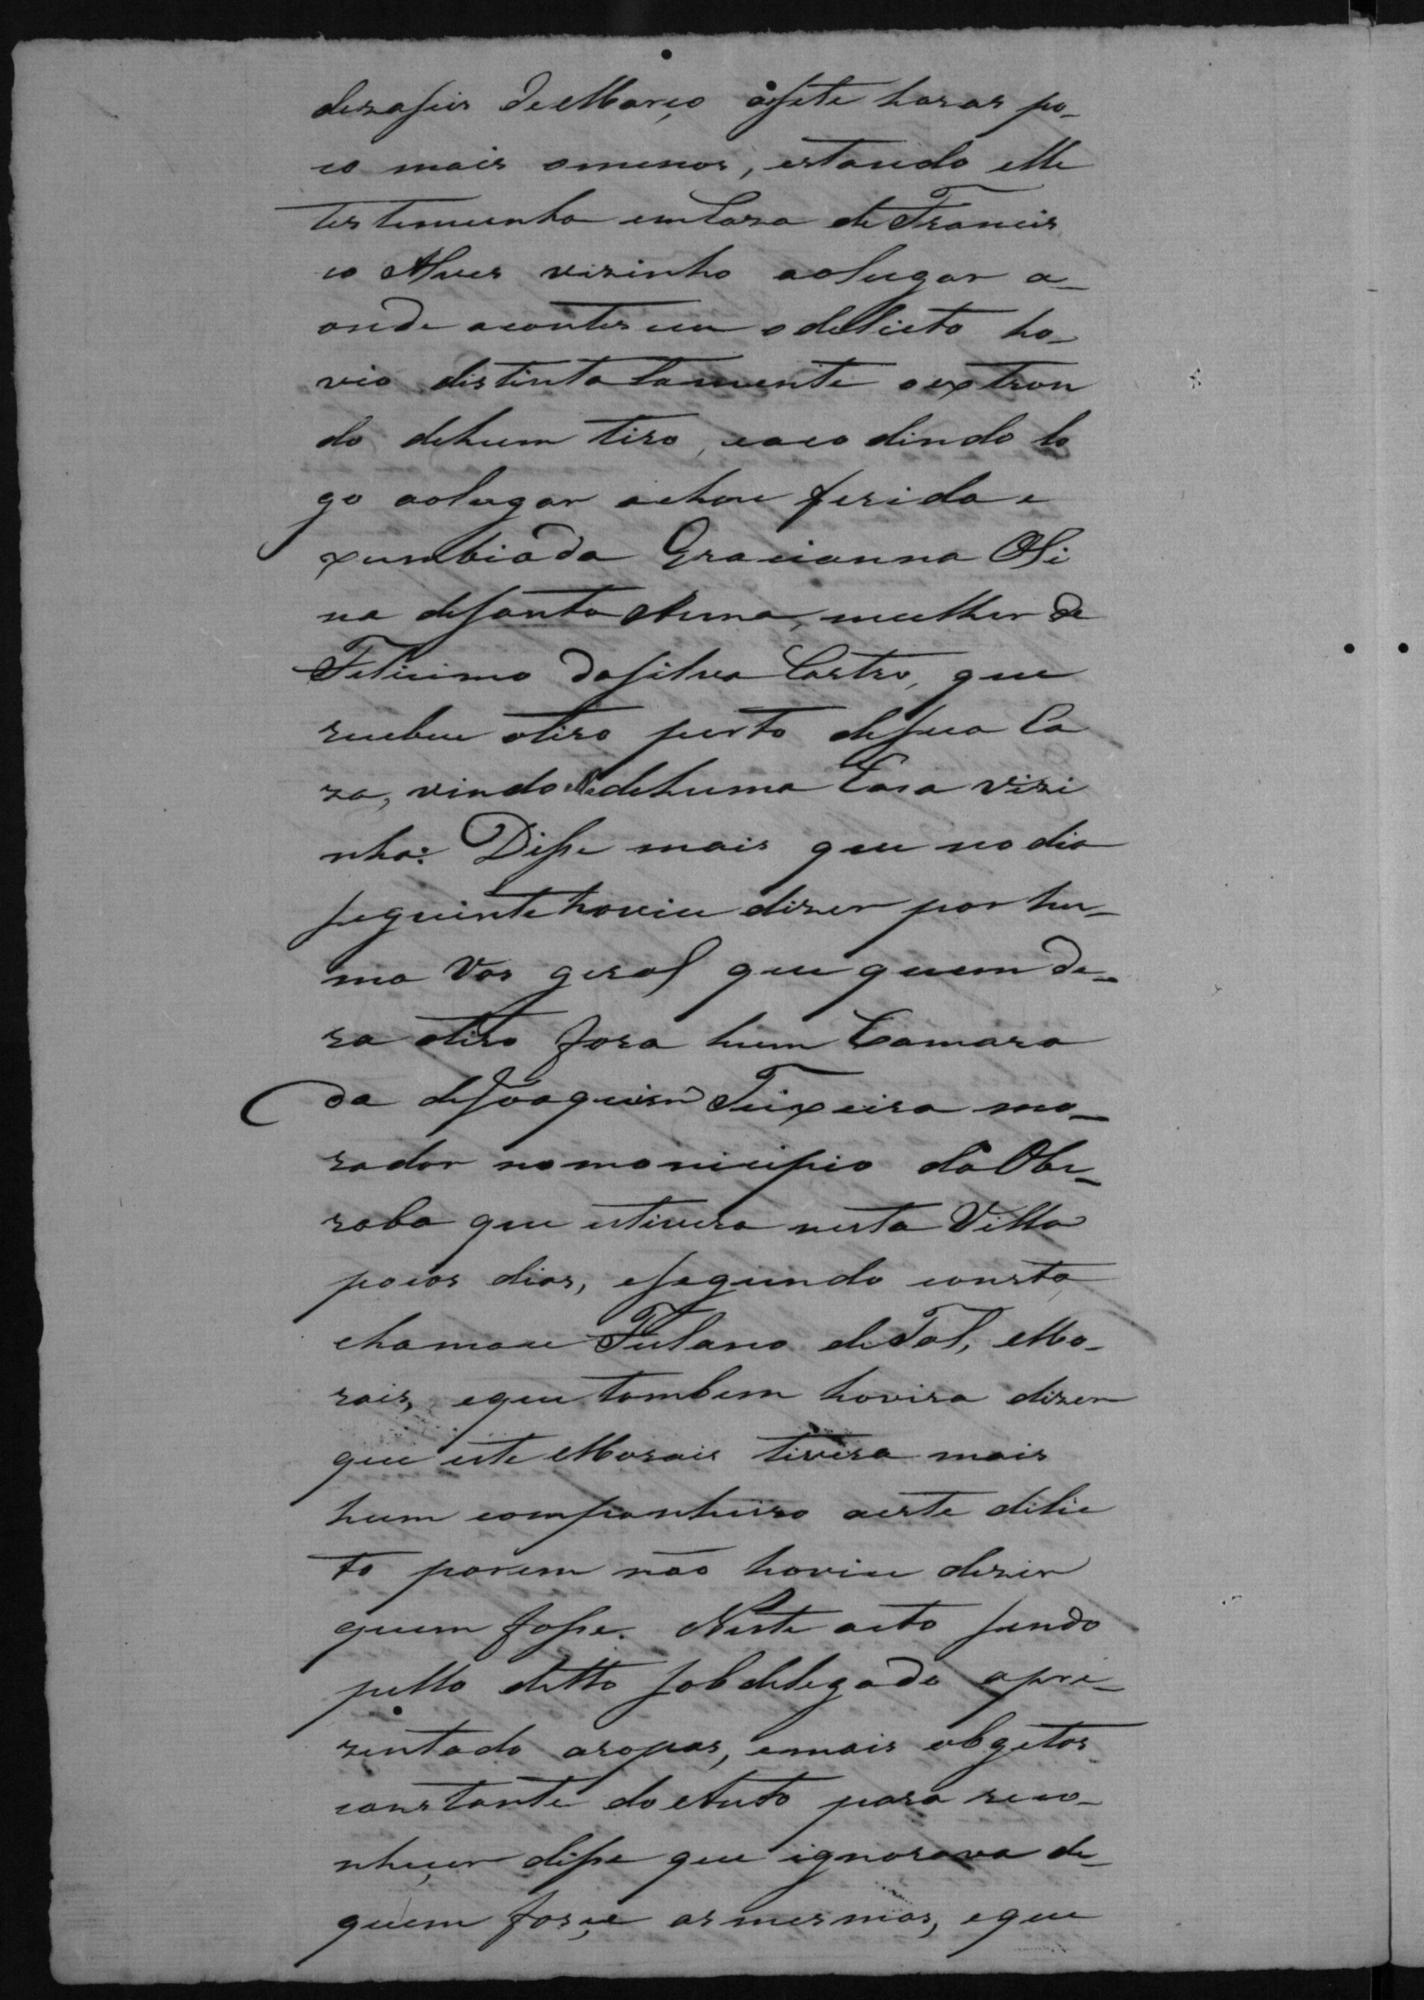 dezaseis de Março ás sete horas po-
co mais omenos, estando elle
testemunha em Caza de Francis
co Alves vizinho ao lugar a-
onde aconteceu o delicto ho-
vio distintatamente o extron
do de hum tiro, e acodindo lo
go ao lugar achou ferida e
xumbiada Gracianna Oli
na de Santa Anna, mulher de
Felicimo da Silva Castro, que
recebeu o tiro perto de sua Ca
za, vindo de huma Casa vizi
nha: Disse mais que no dia
seguinte houviu dizer por hu-
ma Vos geral que quem de-
ra o tiro fora hum Camara
da de Joaquim Teixeira mo-
rador no monicipio da Obe-
raba que estivera nesta Villa
pocos dias, e segundo consta
chamace Fulano de Tal, Mo-
rais, e que tambem hovira dizer
que este Morais tivera mais
hum companheiro a este dilic
to porem não hoviu dizer
quem fosse. Neste acto sendo
pello ditto Sobdelegado apre-
zentado as ropas, e mais obgetos
constante do Auto para reco-
nhecer disse que ignorava de
quem forçe as mesmas, e que